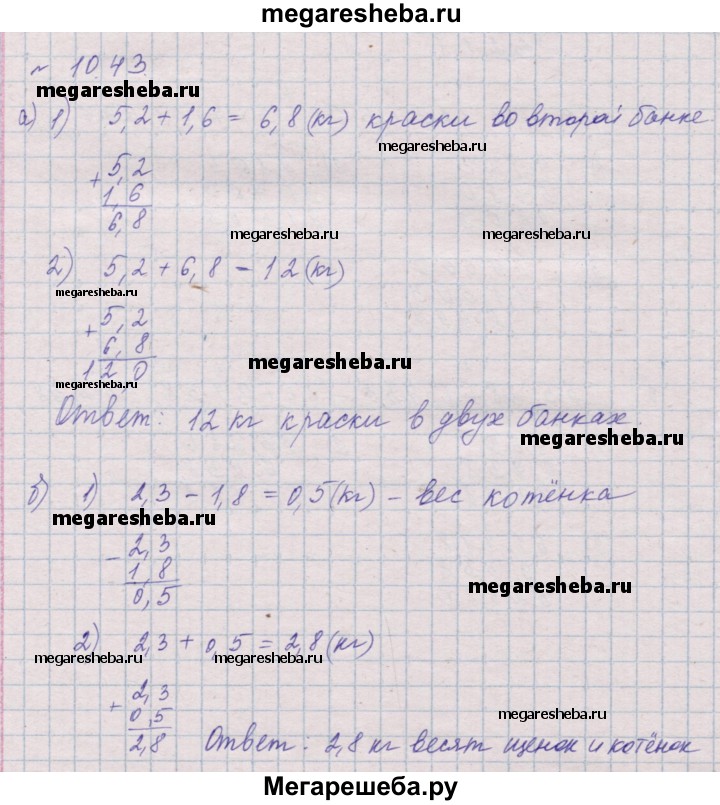 megaresheba.ru
№ 10.43.
megaresheba.ru
а) 1) 5,2 + 1,6 = 6,8 (кг) краски во второй банке
megaresheba.ru
+ 5,2
1,6
6,8
megaresheba.ru megaresheba.ru
2) 5,2 + 6,8 - 12 (кг)
megaresheba.ru
+ 5,2
6,8
12,0
megaresheba.ru
megaresheba.ru
Ответ: 12 кг краски в двух банках
megaresheba.ru
б) 1) 2,3 - 1,8 = 0,5 (кг) - вес котёнка
megaresheba.ru
- 2,3
1,8
0,5
megaresheba.ru
2) 2,3 + 0,5 = 2,8 (кг)
megaresheba.ru megaresheba.ru
+ 2,3
0,5
2,8
megaresheba.ru
Ответ: 2,8 кг весят щенок и котёнок
Мегарешеба.ру